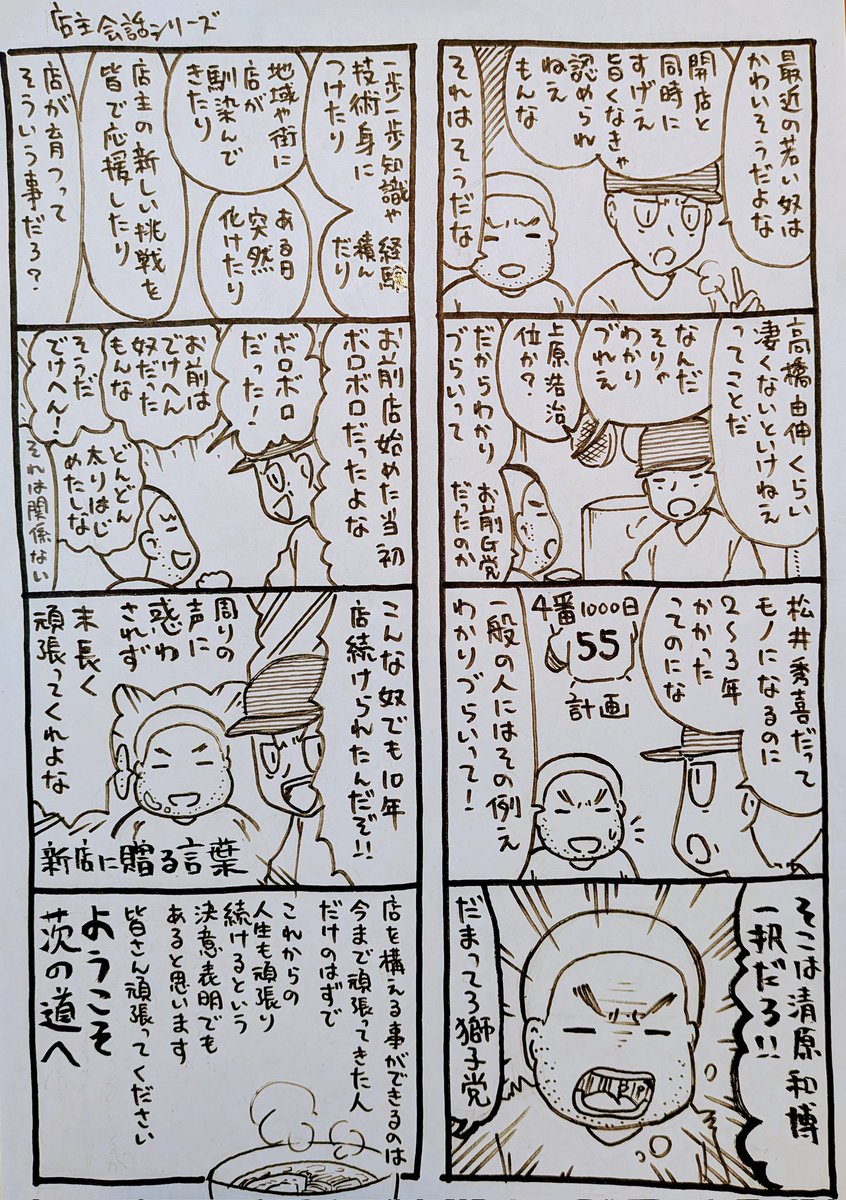 店主会話シリーズ
最近の若い奴は
かわいそうだよな
開店と
同時に
すげえ
旨くなきゃ
認められ
ねえ
もんな
それはそうだな
高橋由伸くらい
凄くないといけねえ
ってことだ
なんだ
そりゃ
わかり
づれえ
上原浩治
位か?
だからわかり
づらいって
お前G党
だったのか
松井秀喜だって
モノになるのに
2〜3年
かかった
ってのにな
4番1000日
55
計画
一般の人にはその例え
わかりづらいって!
そこは清原和博
一択だろ!!
だまってろ獅子党
一歩一歩知識や
技術身に
つけたり
経験
積ん
だり
地域や街に
店が
馴染んで
きたり
ある日
突然
化けたり
店主の新しい挑戦を
皆で応援したり
店が育つって
そういう事だろ?
お前店始めた当初
ボロボロだったよな
ボロボロ
だった!
お前は
でけへん
奴だった
もんな
そうだ
でけへん!
どんどん
太りはじ
めたしな
それは関係ない
こんな奴でも10年
店続けられたんだぞ!!
周りの
声に
惑わ
されず
末長く
頑張ってくれよな
新店に贈る言葉
店を構える事ができるのは
今まで頑張ってきた人
だけのはずで
これからの
人生も頑張り
続けるという
決意表明でも
あると思います
皆さん頑張ってください
ようこそ
茨の道へ